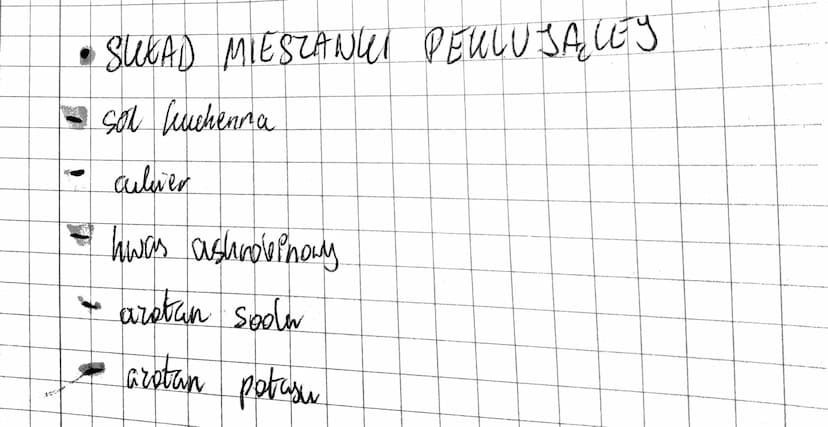 • SKŁAD MIESZANKI PEKLUJĄCEJ
- sól kuchenna
- cukier
- kwas askorbinowy
- azotan sodu
- azotan potasu